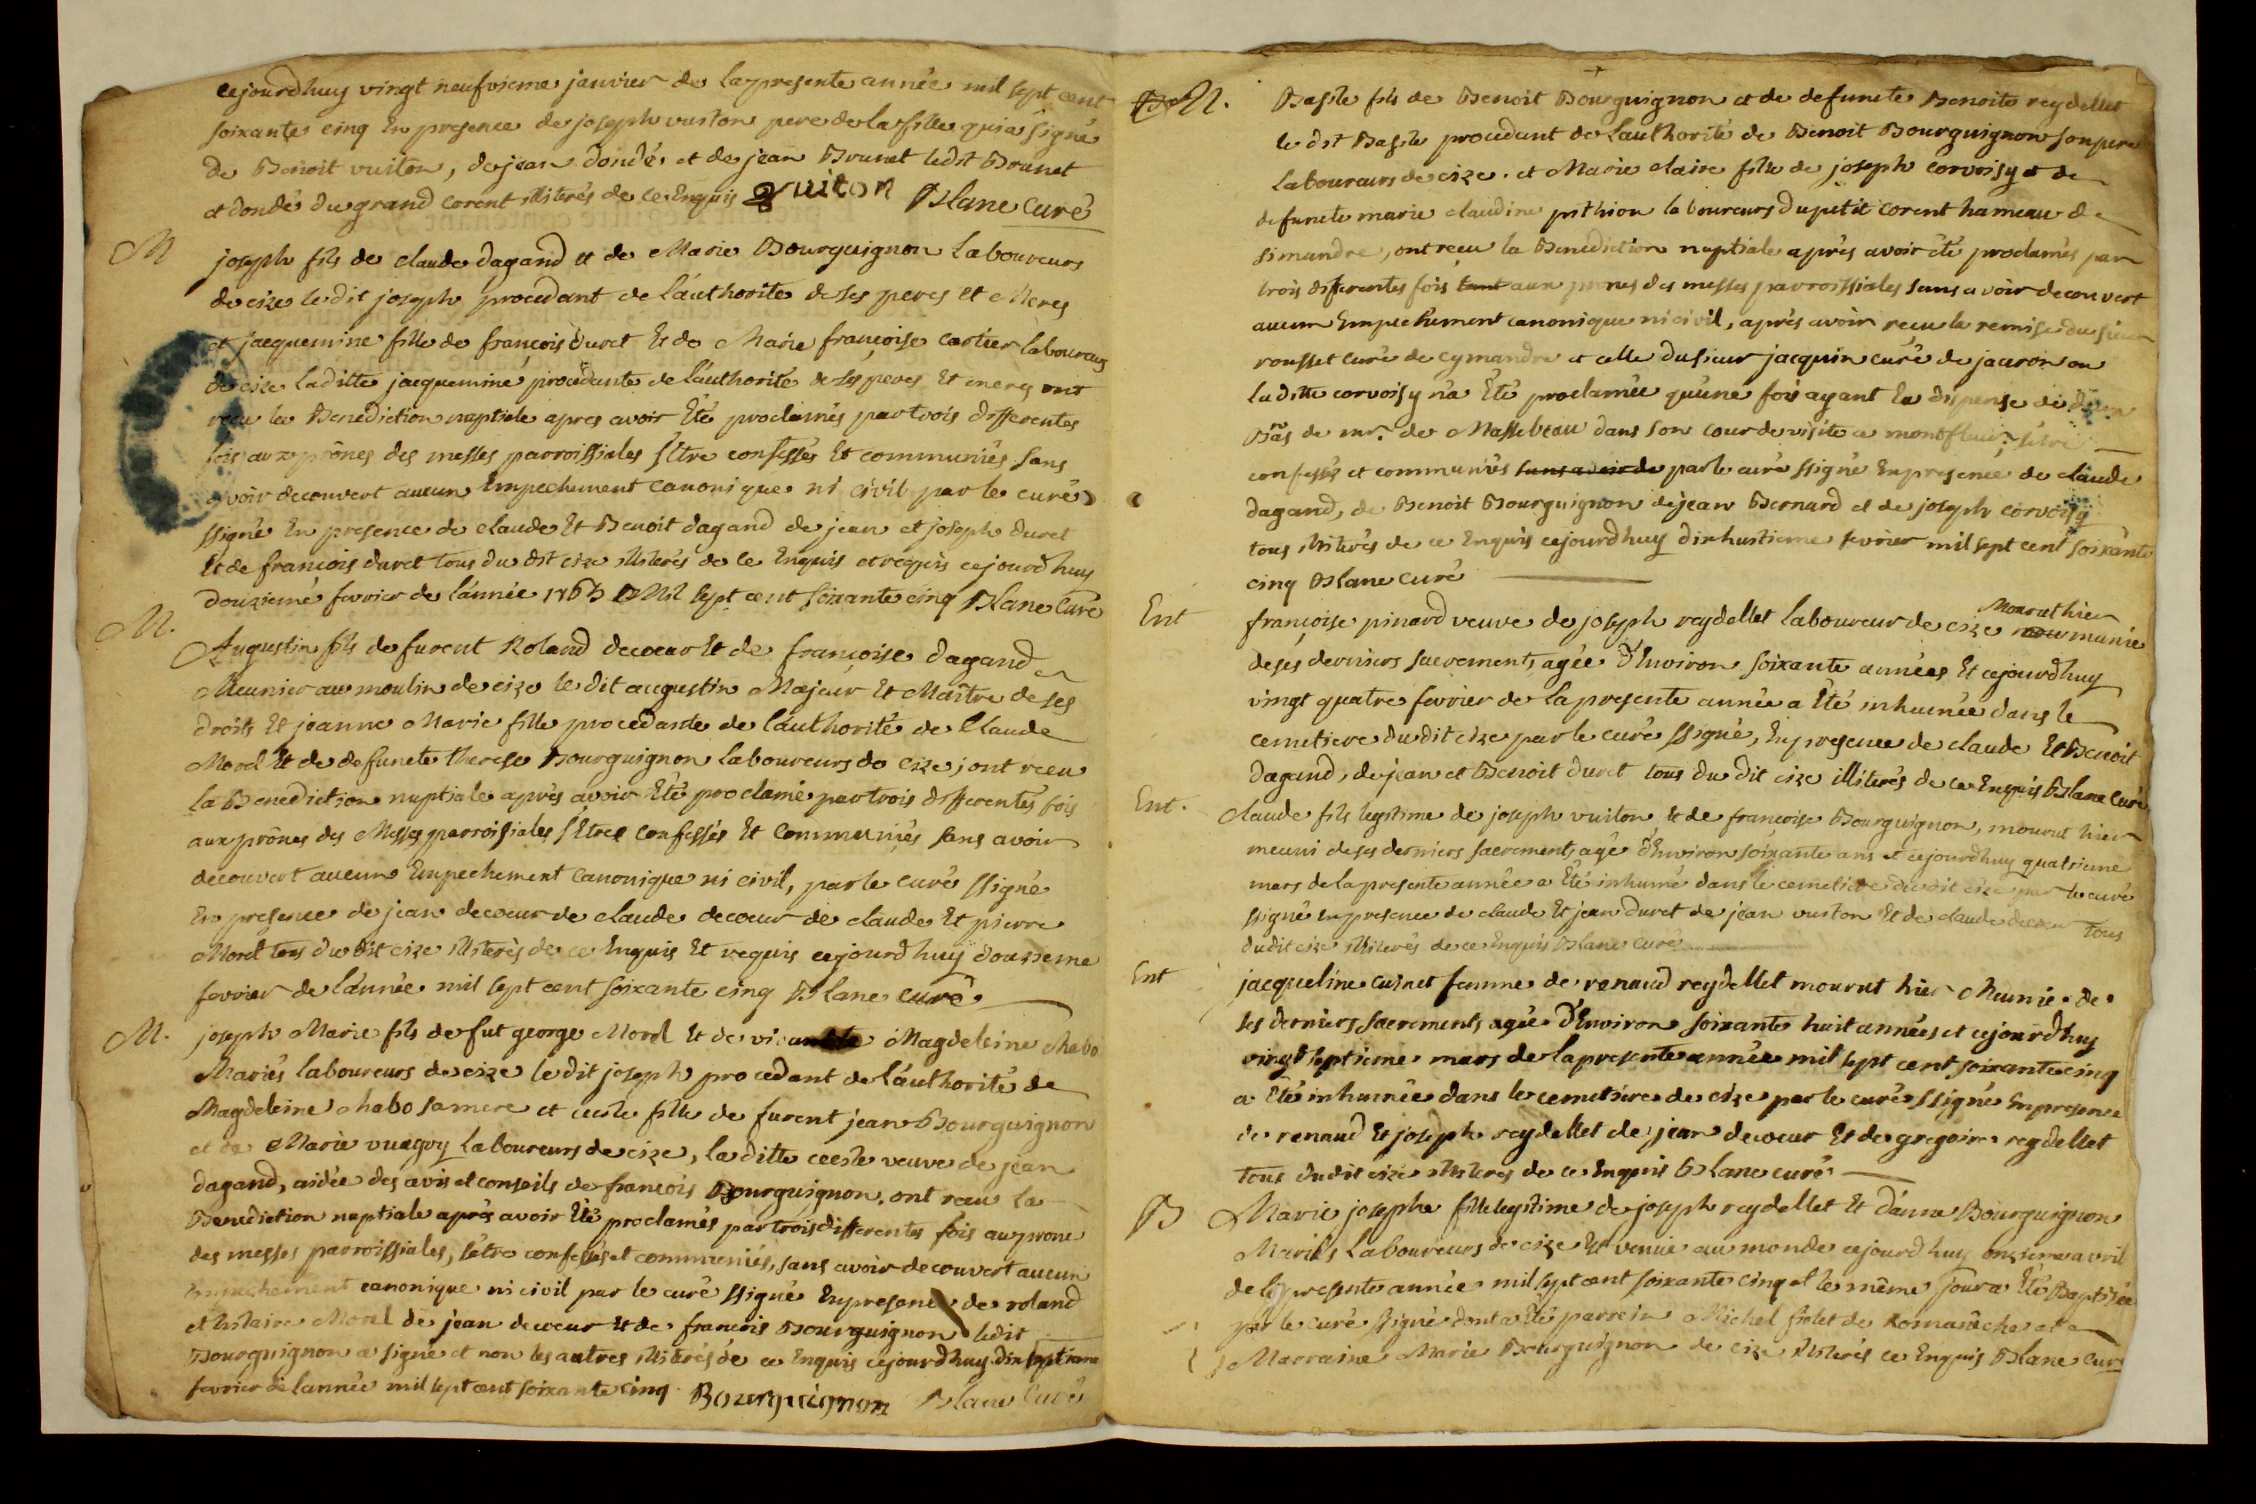 cejourdhuy vingt neufvieme janvier de la presente année mil sept cent
soixante cinq En presence de joseph vuiton pere de la fille qui a signé
de Benoit vuiton, de jean dondé et de jean Brunet ledit Brunet
et dondé du grand corent illiterés de ce Enquis vuiton Blanc curé
M joseph fils de claude dagand et de Marie Bourguignon laboureurs
de cize le dit joseph procedant de l'authorité de ses peres et Meres
et jacquemine fille de françois duret Et de Marie françoise cartier laboureurs
de cize laditte jacquemine procedante de l'authorité de ses peres Et meres ont
reçu la Benediction nuptiale apres avoir Eté proclamés par trois differentes
fois aux prônes des messes parroissiales s'etre confessés Et communiés sans
avoir decouvert aucun Empechement canonique ni civil par le curé
ssigné En presence de claude Et Benoit dagand de jean et joseph duret
Et de francois duret tous du dit cize illiterés de ce Enquis et requis cejourdhuy
douzieme fevrier de l'année 1765 Mil sept cent soixante cinq Blanc Curé
M. Augustin fils de furent Roland decoeur Et de françoise dagand
Meunier au moulin de cize le dit augustin Majeur Et Maître de ses
droits Et jeanne Marie fille procedante de l'authorité de Claude
Morel Et de defuncte therese Bourguignon laboureurs de cize, ont reçu
la Benediction nuptiale après avoir Eté proclamé par trois differentes fois
aux prônes des Messes parroissiales s'Etre confessés Et communiés sans avoir
decouvert aucun Empechement canonique ni civil, par le curé ssigné
En presence de jean decoeur de claude decoeur de claude Et pierre
Morel tous du dit cize illiterés de ce Enquis Et requis cejourdhuy douzieme
fevrier de l'année mil sept cent soixante cinq Blanc curé
M. joseph Marie fils de fut george Morel Et de Magdeleine chabo
Mariés laboureurs de cize le dit joseph procedant de l'authorité de
Magdeleine chabo sa mere et cecile fille de furent jean Bourguignon
et de Marie vuagoy laboureurs de cize, la ditte cecile veuve de jean
dagand, aidée des avis et conseils de francois Bourguignon, ont reçu la
Benediction nuptiale après avoir Eté proclamés par trois differentes fois au prone
des messes parroissiales, s'etre confessés et communiés, sans avoir decouvert aucun
Empechement canonique ni civil par le curé ssigné En presence de roland
et hilaire Morel de jean decoeur Et de francois Bourguignon ledit
Bourguignon a signé et non les autres illiterés de ce Enquis cejourdhuy dix septieme
fevrier de lannée mil sept cent soixante cinq Bourguignon Blanc Curé
M. Basile fils de Benoit Bourguignon et de defuncte Benoite reydellet
le dit Basile procedant de l'authorité de Benoit Bourguignon son pere
laboureurs de cize. et Marie claire fille de joseph corvoisy et de
defuncte marie claudine pithion laboureurs du petit corent hameau de
simandre, ont reçu la Benediction nuptiale après avoir été proclamés par
trois differentes fois tant aux prones des messes parroissiales sans avoir decouvert
aucun Empechement canonique ni civil, après avoir reçu la remise du sieur
rousset curé de cymandre et celle du sieur jacquin curé de jasseron ou
la ditte corvoisy n'a Eté proclamée qu'une fois ayant Eu dispense de
Bans de mr. de Massebeau dans son cour de visite a montfleur, s'etre
confessés et communiés sans avoir de par le curé ssigné En presence de claude
dagand, de Benoit Bourguignon de jean Bernard et de joseph corvoisy
tous illiterés de ce Enquis cejourdhuy dixhuitieme fevrier mil sept cent soixante
cinq Blanc curé
Ent françoise pinard veuve de joseph reydellet laboureur de cize Mourut hier munie
de ses derniers sacrements, agée d'Environ soixante années Et cejourdhuy
vingt quatre fevrier de la presente année a Eté inhumée dans le
cemetiere du dit cize par le curé ssigné, En presence de claude Et Benoit
dagand, de jean et Benoit duret tous du dit cize illiterés de ce Enquis Blanc curé
Ent. Claude fils legitime de joseph vuiton Et de francoise Bourguignon, mourut hier
muni de ses derniers sacrements, agé d'Environ soixante ans et cejourdhuy quatrieme
mars de la presente année a Eté inhumé dans le cemetiere du dit cize par le curé
ssigné En presence de claude Et jean duret de jean vuiton Et de claude decoeur tous
du dit cize illiterés de ce Enquis Blanc curé
Ent jacqueline cuinet femme de renaud reydellet mourut hier Munie de
ses derniers sacrements, agée d'Environ soixante huit années et cejourdhuy
vingt septieme mars de la presente année mil sept cent soixante cinq
a Eté inhumée dans le cemetiere de cize par le curé ssigné En presence
de renaud Et joseph reydellet de jean decoeur Et de gregoire reydellet
tous dudit cize illiterés de ce Enquis Blanc curé
B Marie josephe fille legitime de joseph reydellet Et d'anne Bourguignon
Mariés laboureurs de cize Est venüe au monde cejourdhuy onzieme avril
de la presente année mil sept cent soixante cinq et le même jour a Eté Baptisée
par le curé ssigné dont a Eté parrein Michel filet de Romanêche et
Marraine Marie Bourguignon de cize illiterés ce Enquis Blanc curé